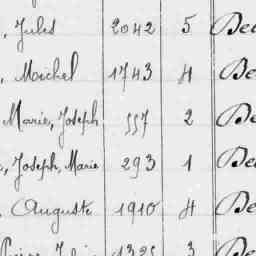 , Jules 2042 5 Be
, Michel 1743 4 Be
Marie, Joseph 557 2 Be
, Joseph, Marie 293 1 Be
, Auguste 1910 4 Be
1325 3 Be